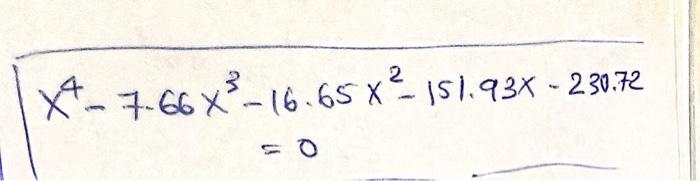 x⁴ - 7.66x³ - 16.65x² - 151.93x - 230.72
= 0